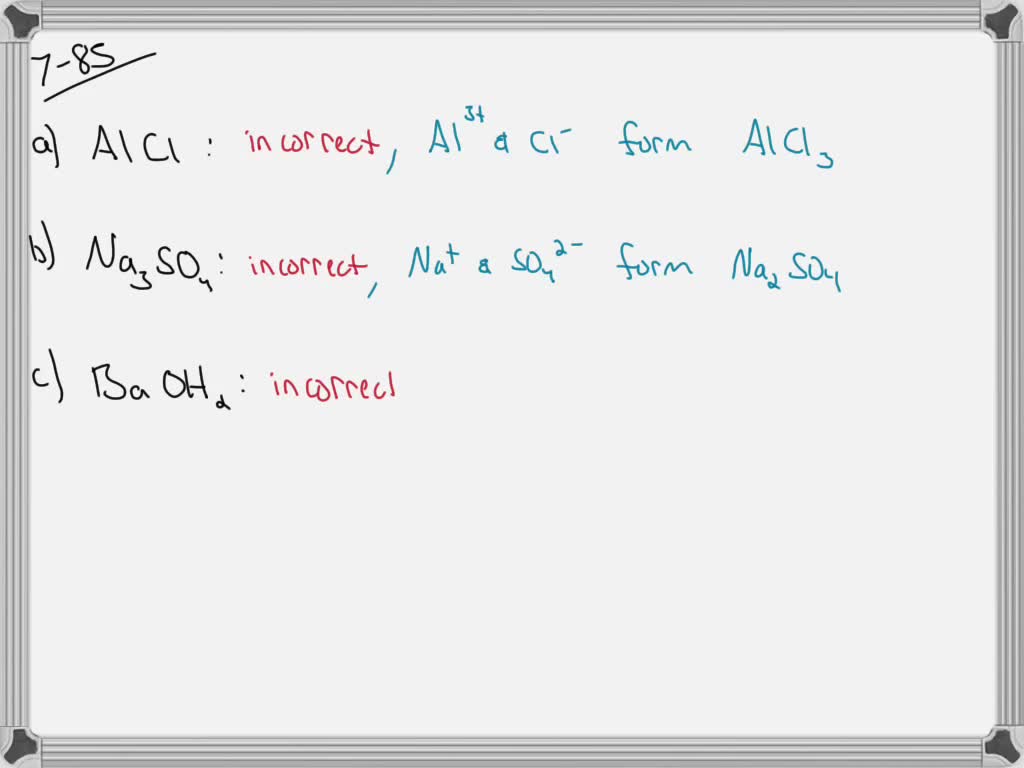 7-85
a) AlCl : incorrect, Al³⁺ & Cl⁻ form AlCl₃
b) Na₃SO₄ : incorrect, Na⁺ & SO₄²⁻ form Na₂SO₄
c) BaOH₂ : incorrect